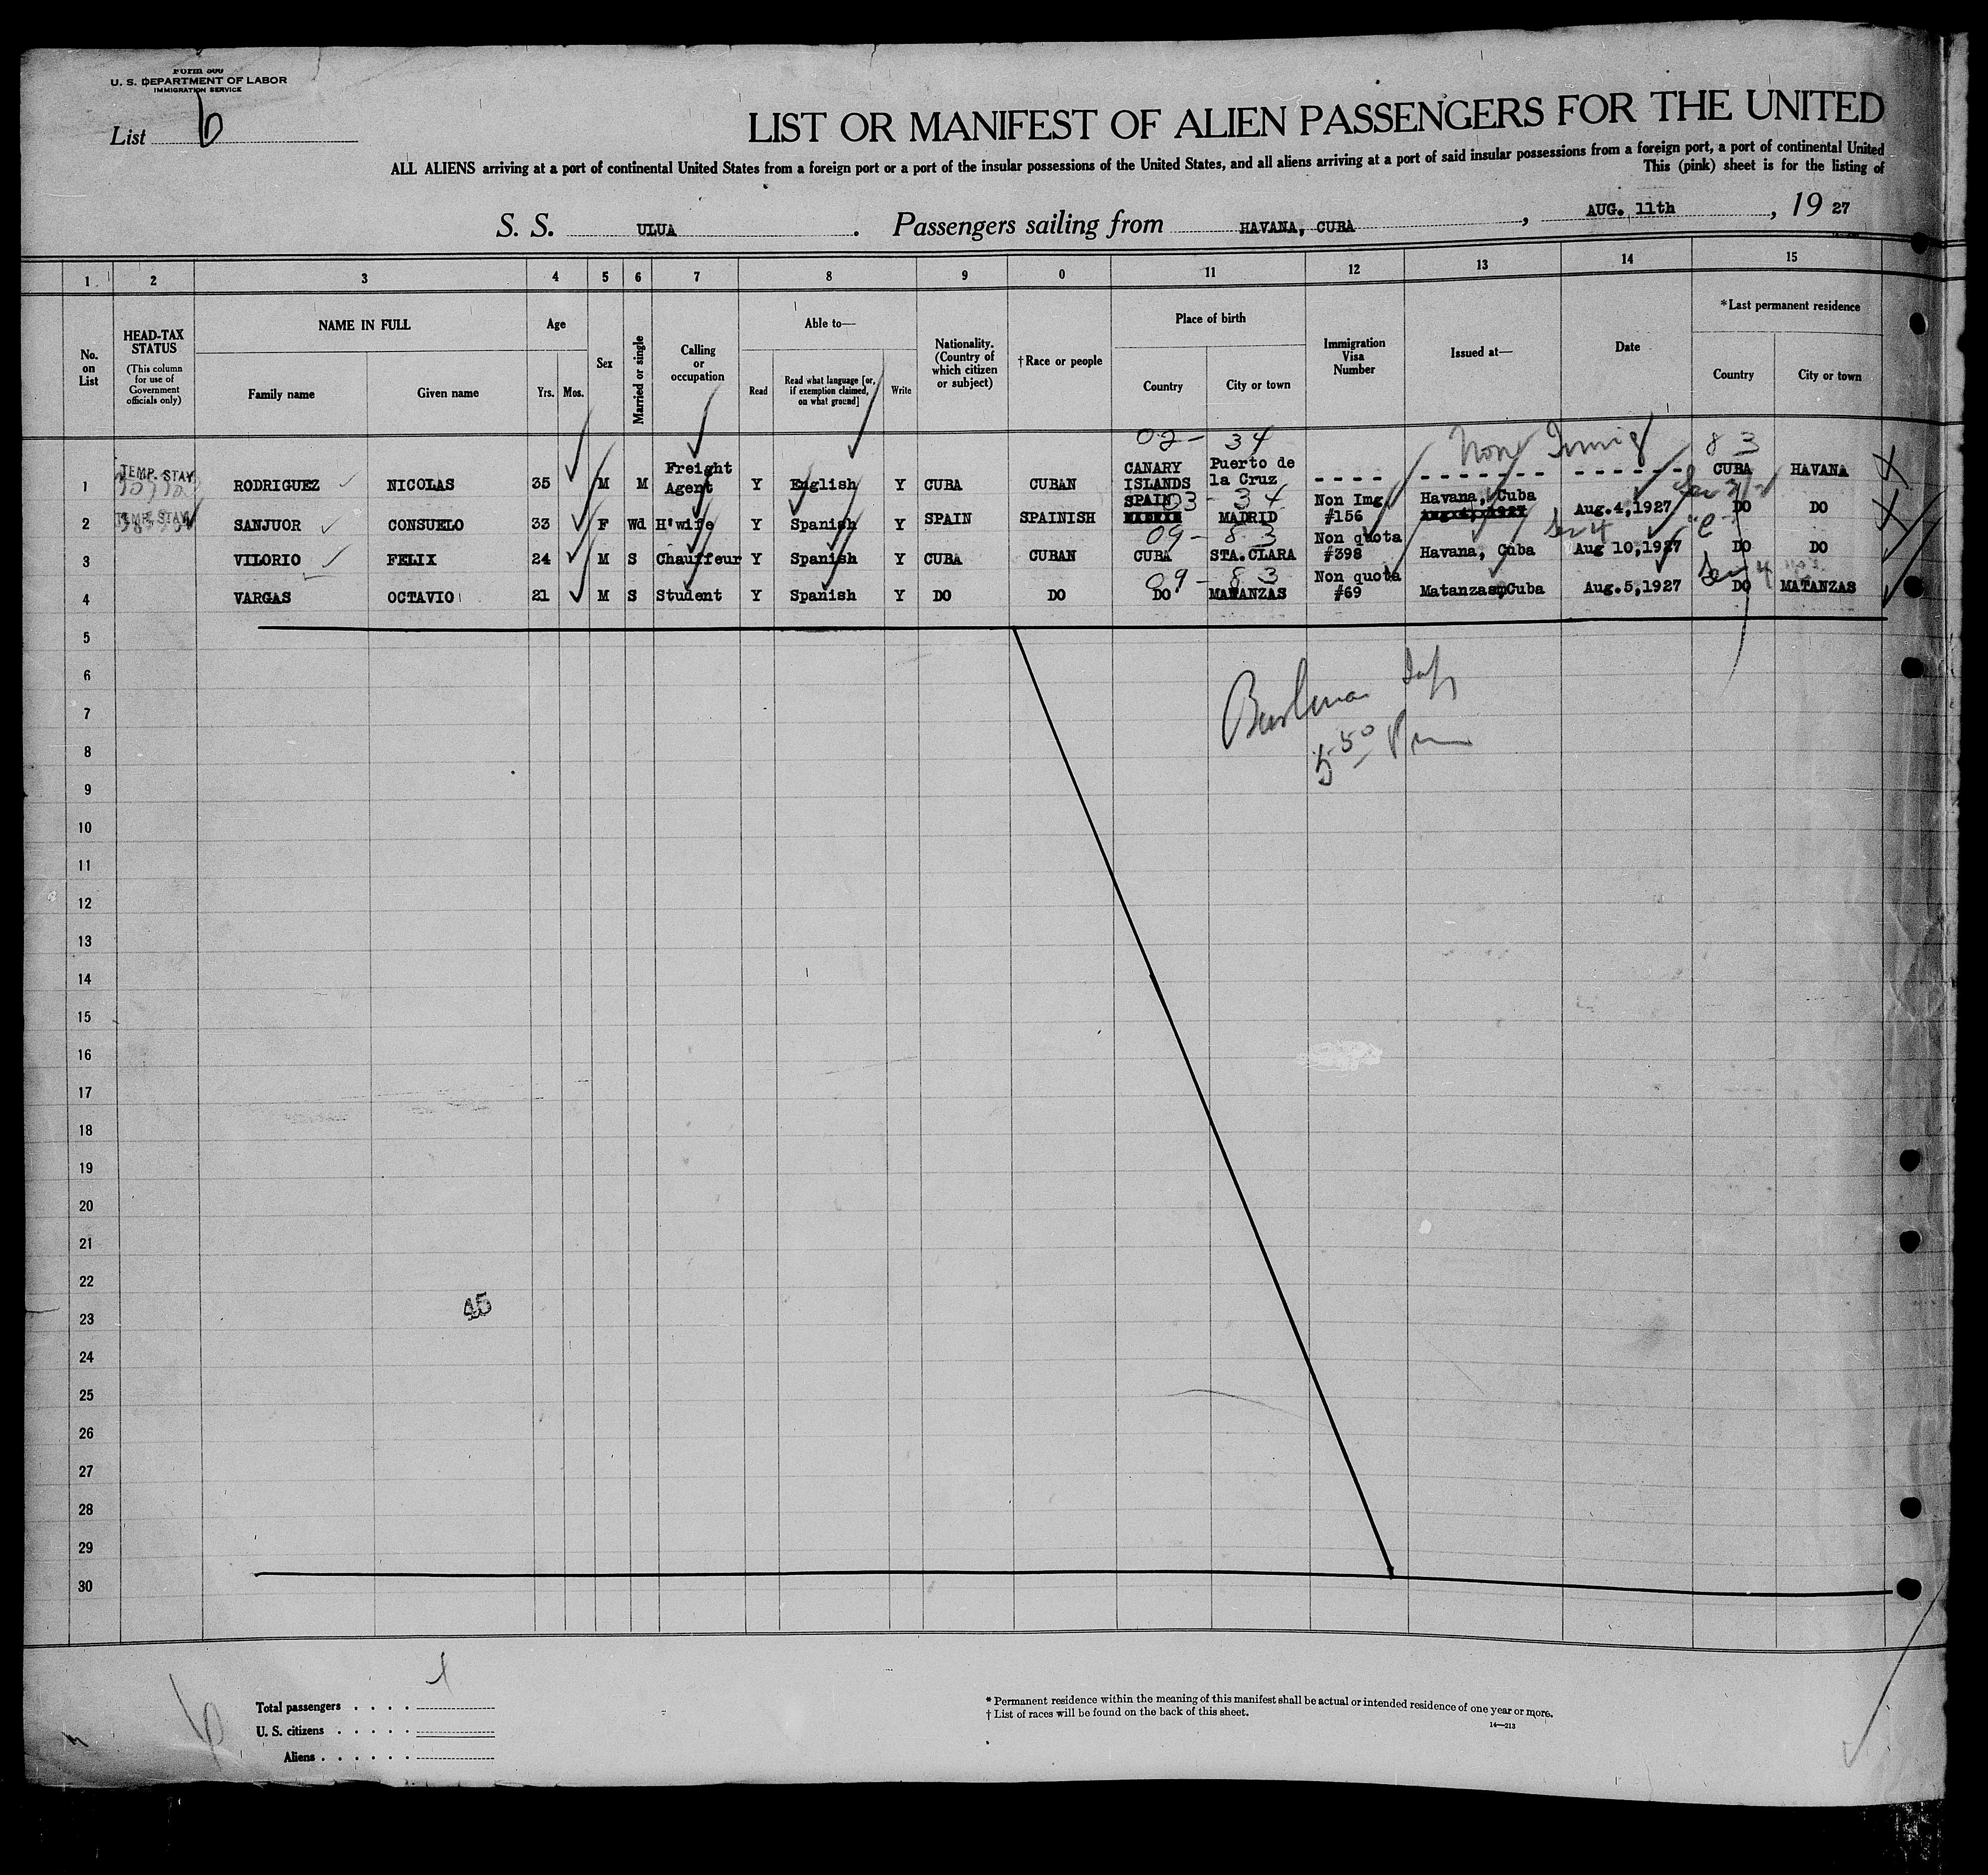 Form 500
U. S. DEPARTMENT OF LABOR
IMMIGRATION SERVICE
List 6
LIST OR MANIFEST OF ALIEN PASSENGERS FOR THE UNITED
ALL ALIENS arriving at a port of continental United States from a foreign port or a port of the insular possessions of the United States, and all aliens arriving at a port of said insular possessions from a foreign port, a port of continental United
This (pink) sheet is for the listing of
S. S. ULUA . Passengers sailing from HAVANA, CUBA , AUG. 11th , 19 27
1 2 3 4 5 6 7 8 9 0 11 12 13 14 15
No. on List
HEAD-TAX STATUS
(This column for use of Government officials only)
NAME IN FULL
Family name Given name
Age
Yrs. Mos.
Sex
Married or single
Calling or occupation
Able to—
Read
Read what language [or, if exemption claimed, on what ground]
Write
Nationality. (Country of which citizen or subject)
†Race or people
Place of birth
Country City or town
Immigration Visa Number
Issued at—
Date
*Last permanent residence
Country City or town
02 - 34 Non Immig 83
1 TEMP. STAY RODRIGUEZ NICOLAS 35 M M Freight Agent Y English Y CUBA CUBAN CANARY ISLANDS Puerto de la Cruz - - - - - - - - - - - - - - - - - CUBA HAVANA
03 - 34
2 TEMP. STAY SANJUOR CONSUELO 33 F Wd H'wife Y Spanish Y SPAIN SPAINISH SPAIN MADRID Non Img #156 Havana, Cuba Aug.4,1927 DO DO
09 - 83 Sec 4 "C"
3 VILORIO FELIX 24 M S Chauffeur Y Spanish Y CUBA CUBAN CUBA STA.CLARA Non quota #398 Havana, Cuba Aug 10,1927 DO DO
09 - 83 Sec 4
4 VARGAS OCTAVIO 21 M S Student Y Spanish Y DO DO DO MATANZAS Non quota #69 Matanzas, Cuba Aug.5,1927 DO MATANZAS
5
6
7
8
5 50 Pm
9
10
11
12
13
14
15
16
17
18
19
20
21
22
23
45
24
25
26
27
28
29
30
Total passengers . . . .
U. S. citizens . . . . .
Aliens . . . . . .
* Permanent residence within the meaning of this manifest shall be actual or intended residence of one year or more.
† List of races will be found on the back of this sheet.
14—213